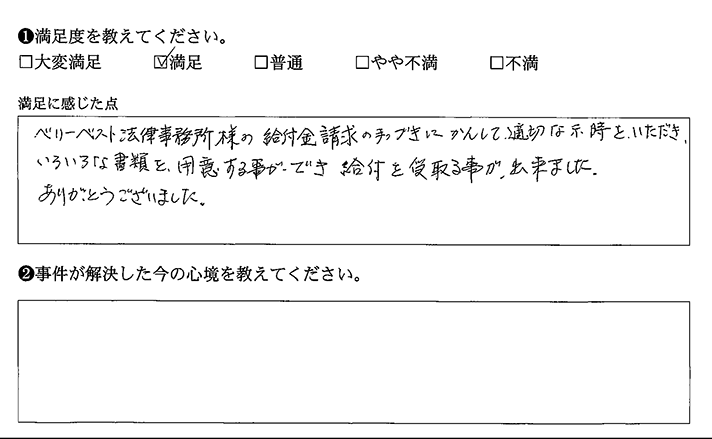 ❶満足度を教えてください。
□大変満足 ☑満足 □普通 □やや不満 □不満
満足に感じた点
ベリーベスト法律事務所様の給付金請求の手つづきにかんして適切な示時を、いただき、
いろいろな書類を、用意する事ができ 給付を受取る事が、出来ました。
ありがとうございました。
❷事件が解決した今の心境を教えてください。